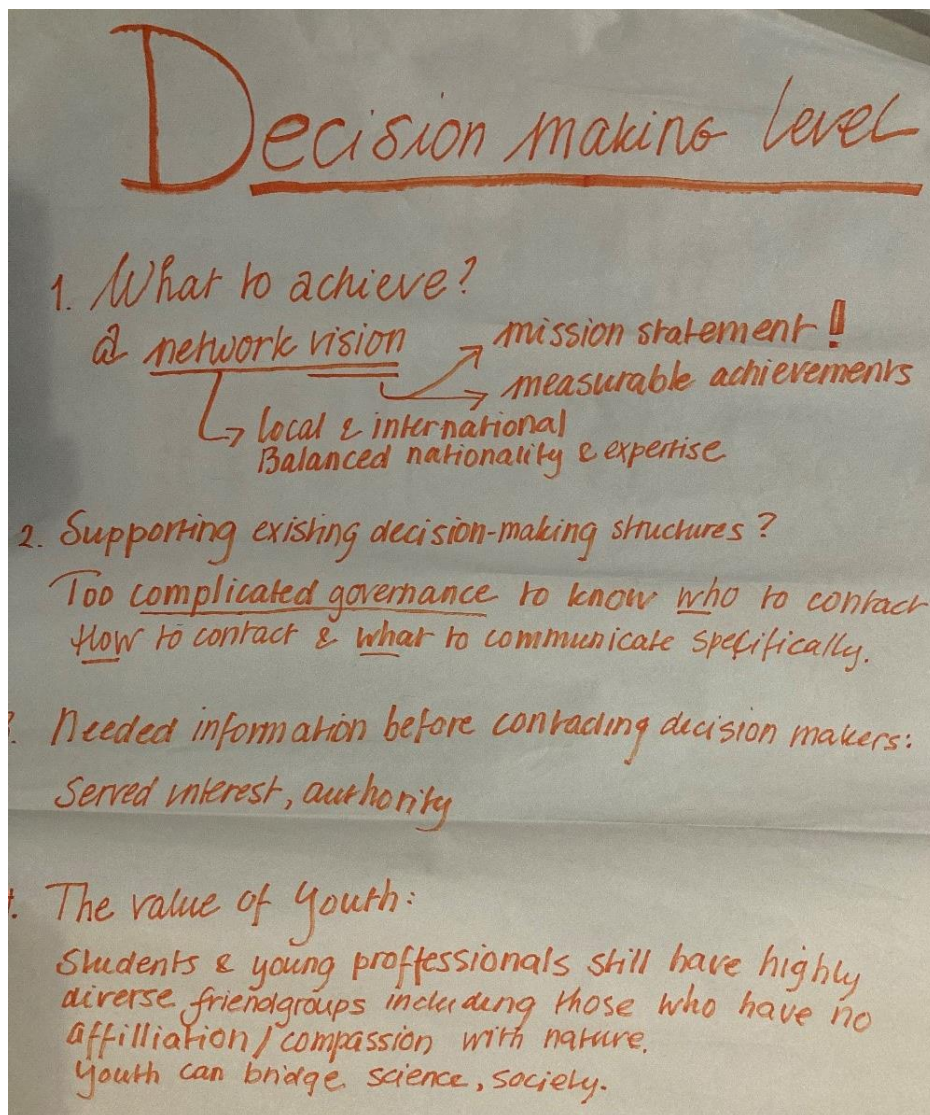 Decision making level
1. What to achieve?
a network vision
mission statement!
measurable achievements
local & international
Balanced nationality & expertise
2. Supporting existing decision-making structures?
Too complicated governance to know who to contact
How to contact & what to communicate specifically.
Needed information before contacting decision makers:
Served interest, authority
The value of Youth:
Students & young proffessionals still have highly
diverse friendgroups including those who have no
affilliation/compassion with nature.
Youth can bridge science, society.